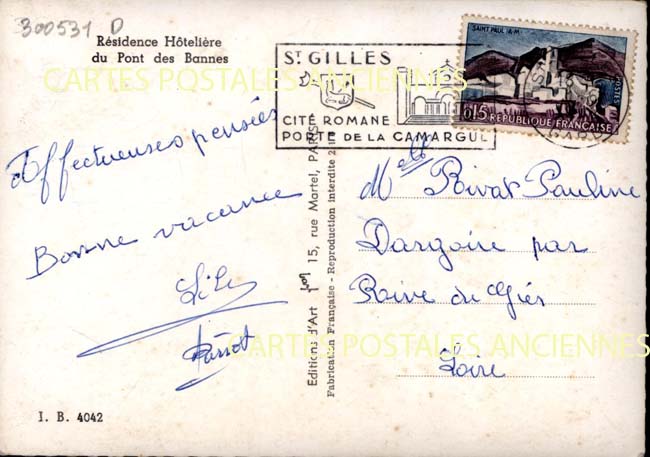 300531 D
Résidence Hôtelière
du Pont des Bannes
CARTES POSTALES ANCIENNES
Affectueuses pensées
Bonne vacance
Lili
I. B. 4042
Editions d'Art yvon 15, rue Martel, PARIS
Fabrication Française - Reproduction interdite
ST GILLES
CITÉ ROMANE
PORTE DE LA CAMARGUE
SAINT PAUL (A.-M.)
POSTES
0,15 REPUBLIQUE FRANÇAISE
GARD
Melle Rivat Pauline
Dargoire par
Rive de Giers
Loire
CARTES POSTALES ANCIENNES